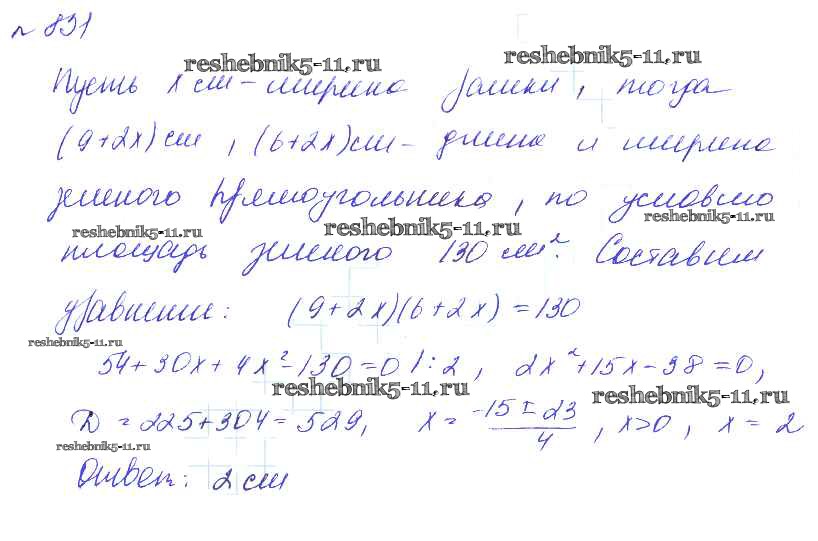 № 831
reshebnik5-11.ru reshebnik5-11.ru
Пусть x см – ширина рамки, тогда
(9+2x) см, (6+2x) см – длина и ширина
земного прямоугольника, по условию
reshebnik5-11.ru reshebnik5-11.ru reshebnik5-11.ru
площадь земного 130 см². Составим
уравнение: (9+2x)(6+2x) = 130
reshebnik5-11.ru
54+30x+4x²-130=0 |:2, 2x²+15x-38=0,
reshebnik5-11.ru reshebnik5-11.ru
D = 225+304 = 529, x = (-15±23)/4, x>0, x = 2
reshebnik5-11.ru
Ответ: 2 см